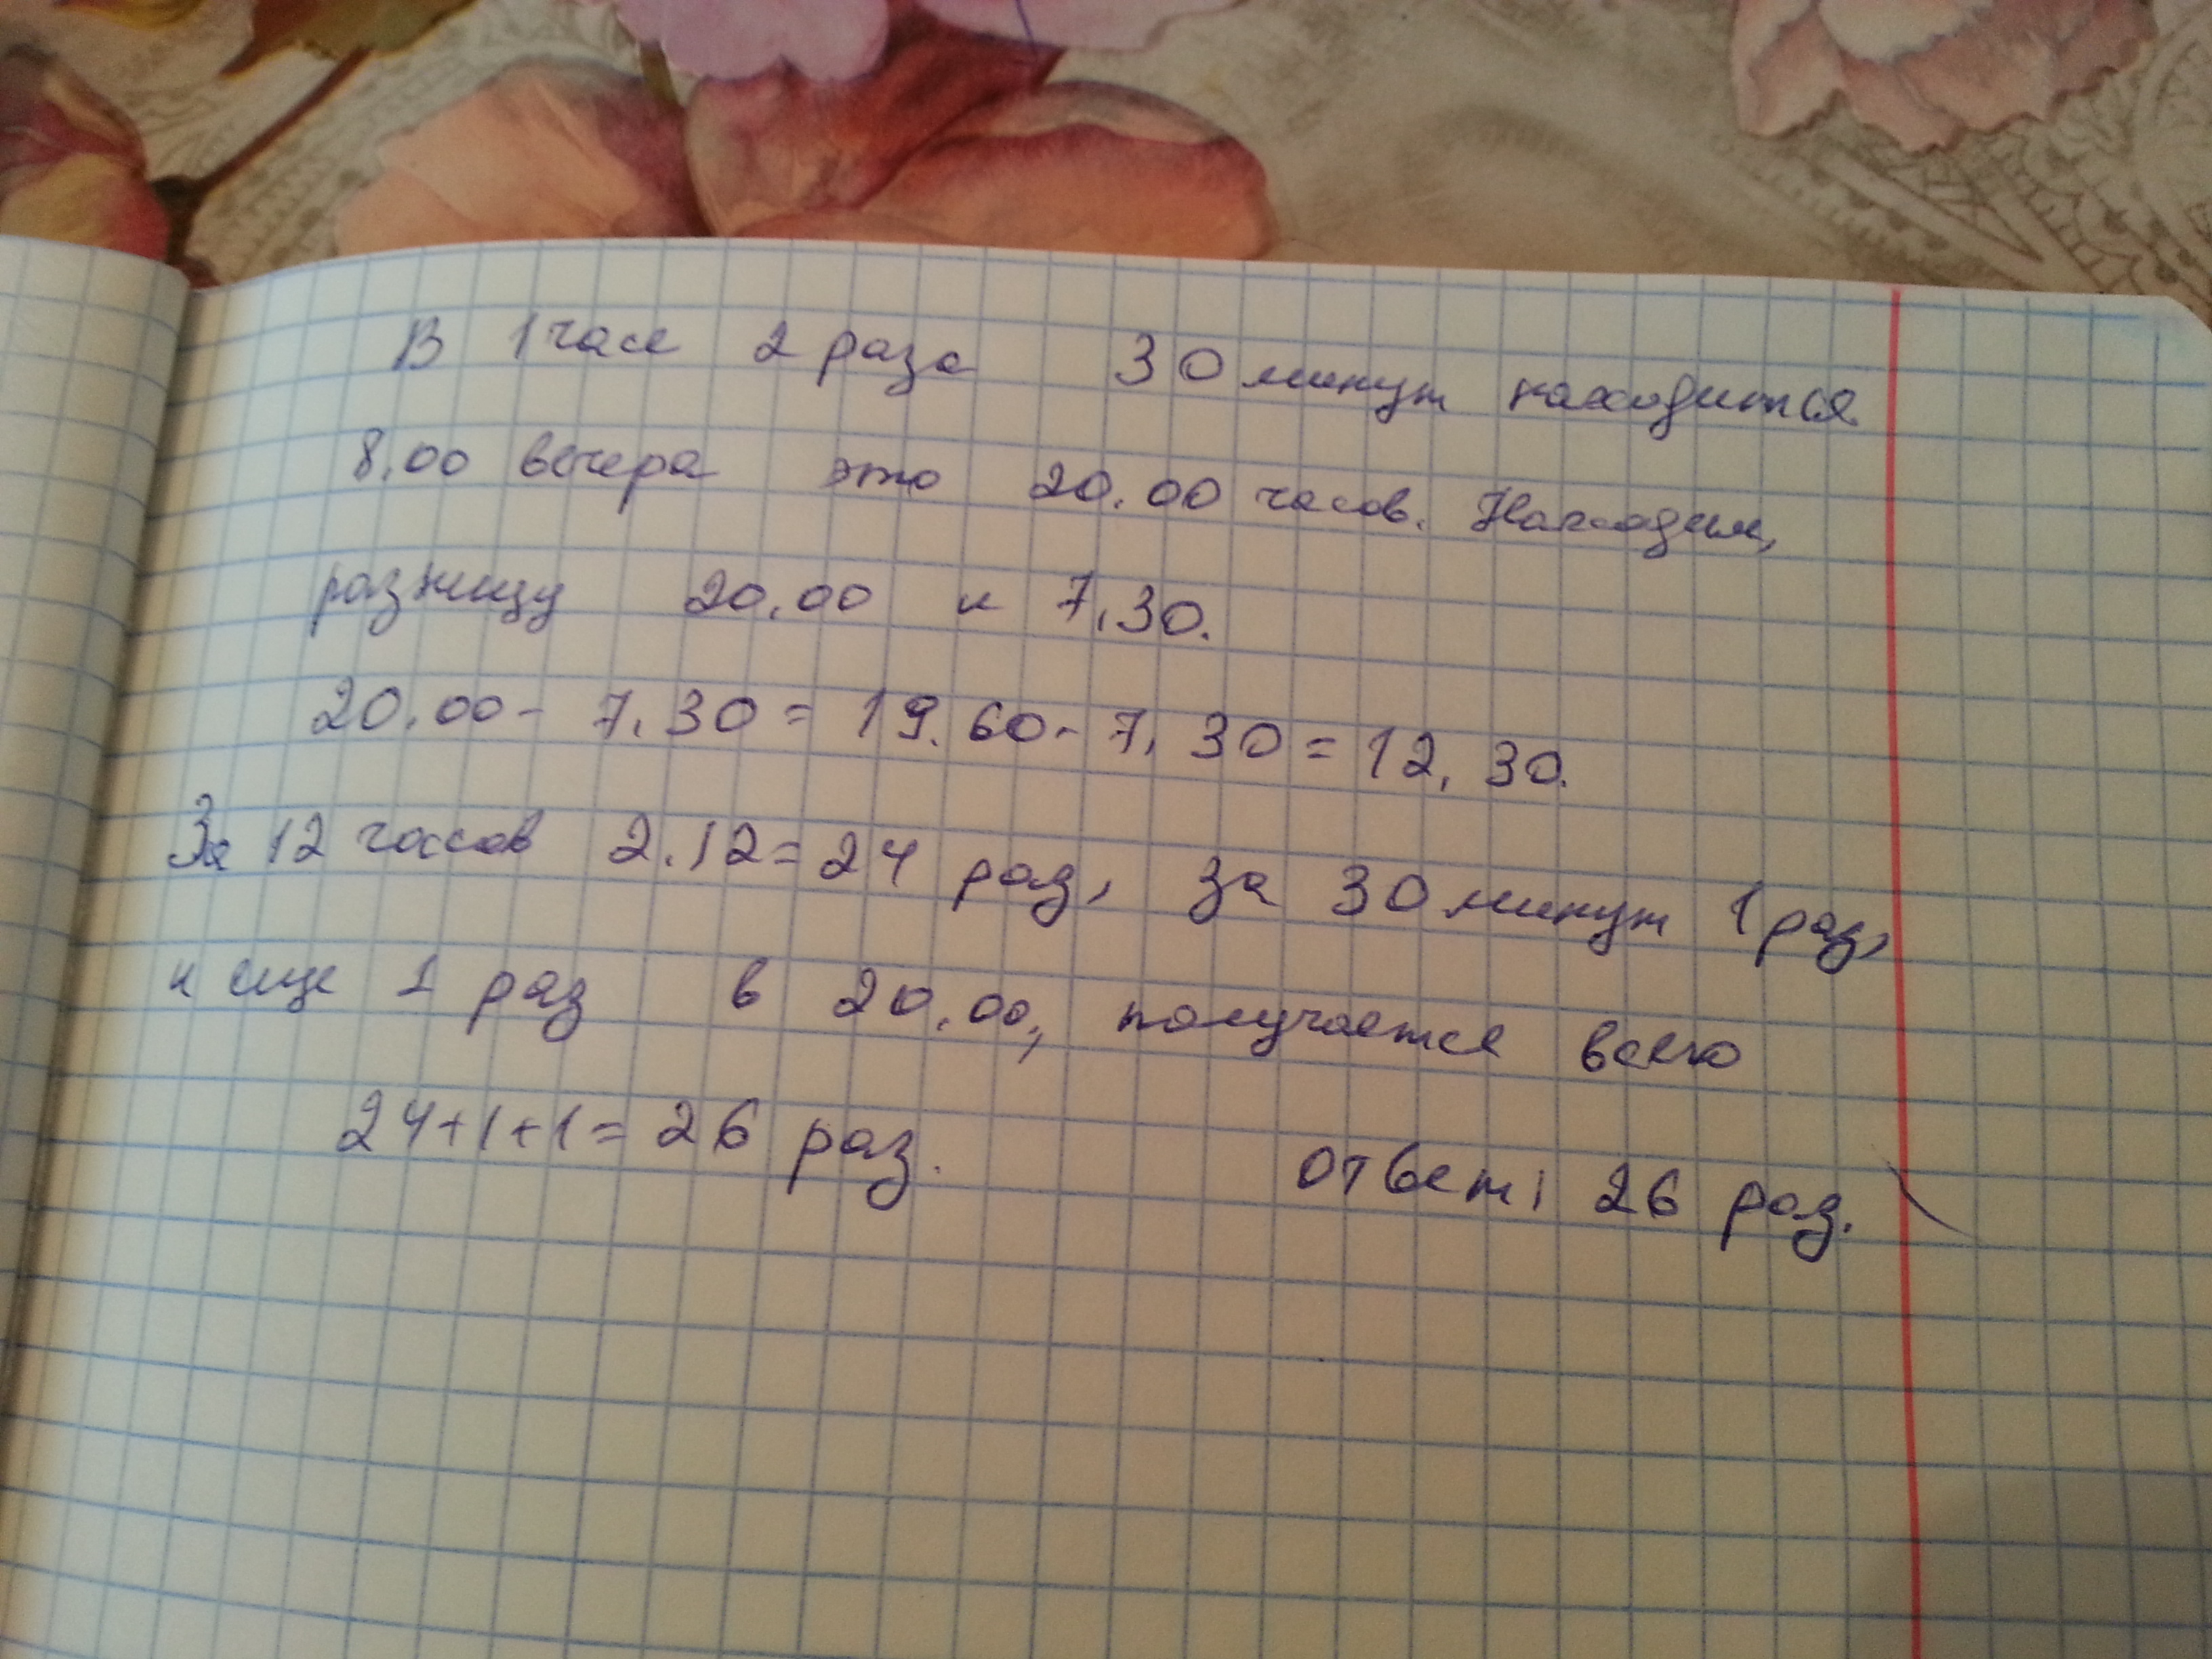 В 1 часе 2 раза 30 минут находится
8.00 вечера это 20.00 часов. Находим,
разницу 20.00 и 7.30.
20.00 - 7.30 = 19.60 - 7.30 = 12,30.
За 12 часов 2.12=24 раз, за 30 минут 1 раз,
и еще 1 раз в 20.00, получается всего
24+1+1= 26 раз. Ответ: 26 раз.